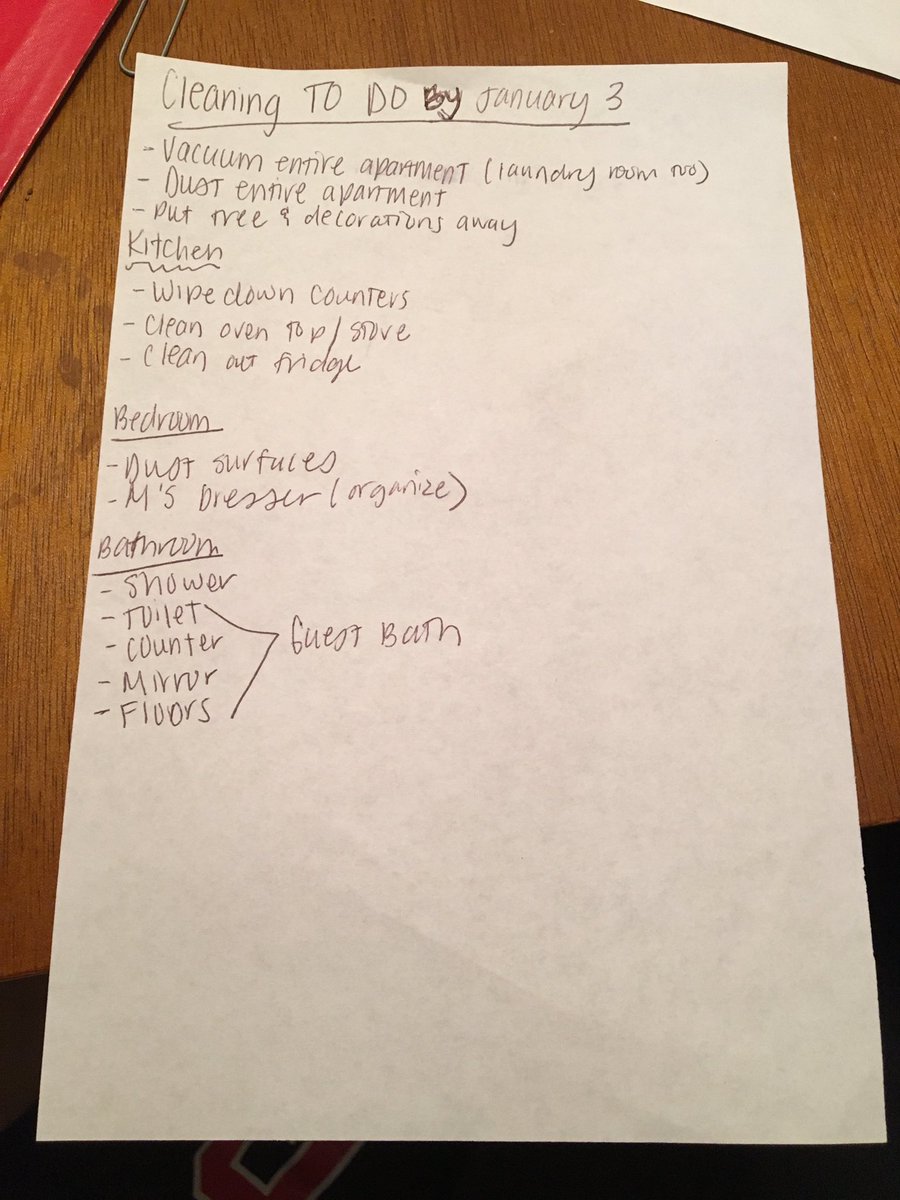 Cleaning TO DO By January 3
- Vacuum entire apartment (laundry room too)
- Dust entire apartment
- Put tree & decorations away
Kitchen
- Wipe down counters
- Clean oven top/stove
- Clean out fridge
Bedroom
- Dust surfaces
- M's Dresser (organize)
Bathroom
- Shower
- Toilet
- Counter
- Mirror
- Floors
Guest Bath